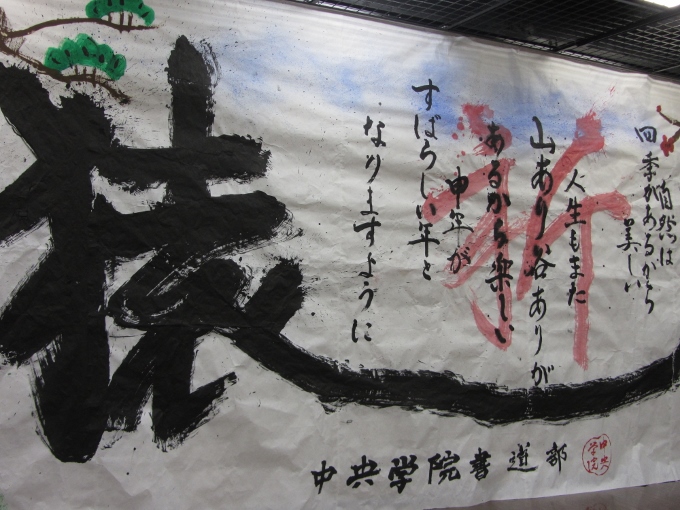 自然は
四季があるから
美しい
人生もまた
山あり谷ありが
あるから楽しい
申年が
すばらしい年と
なりますように
祈
猿
中央学院書道部
中央
学院